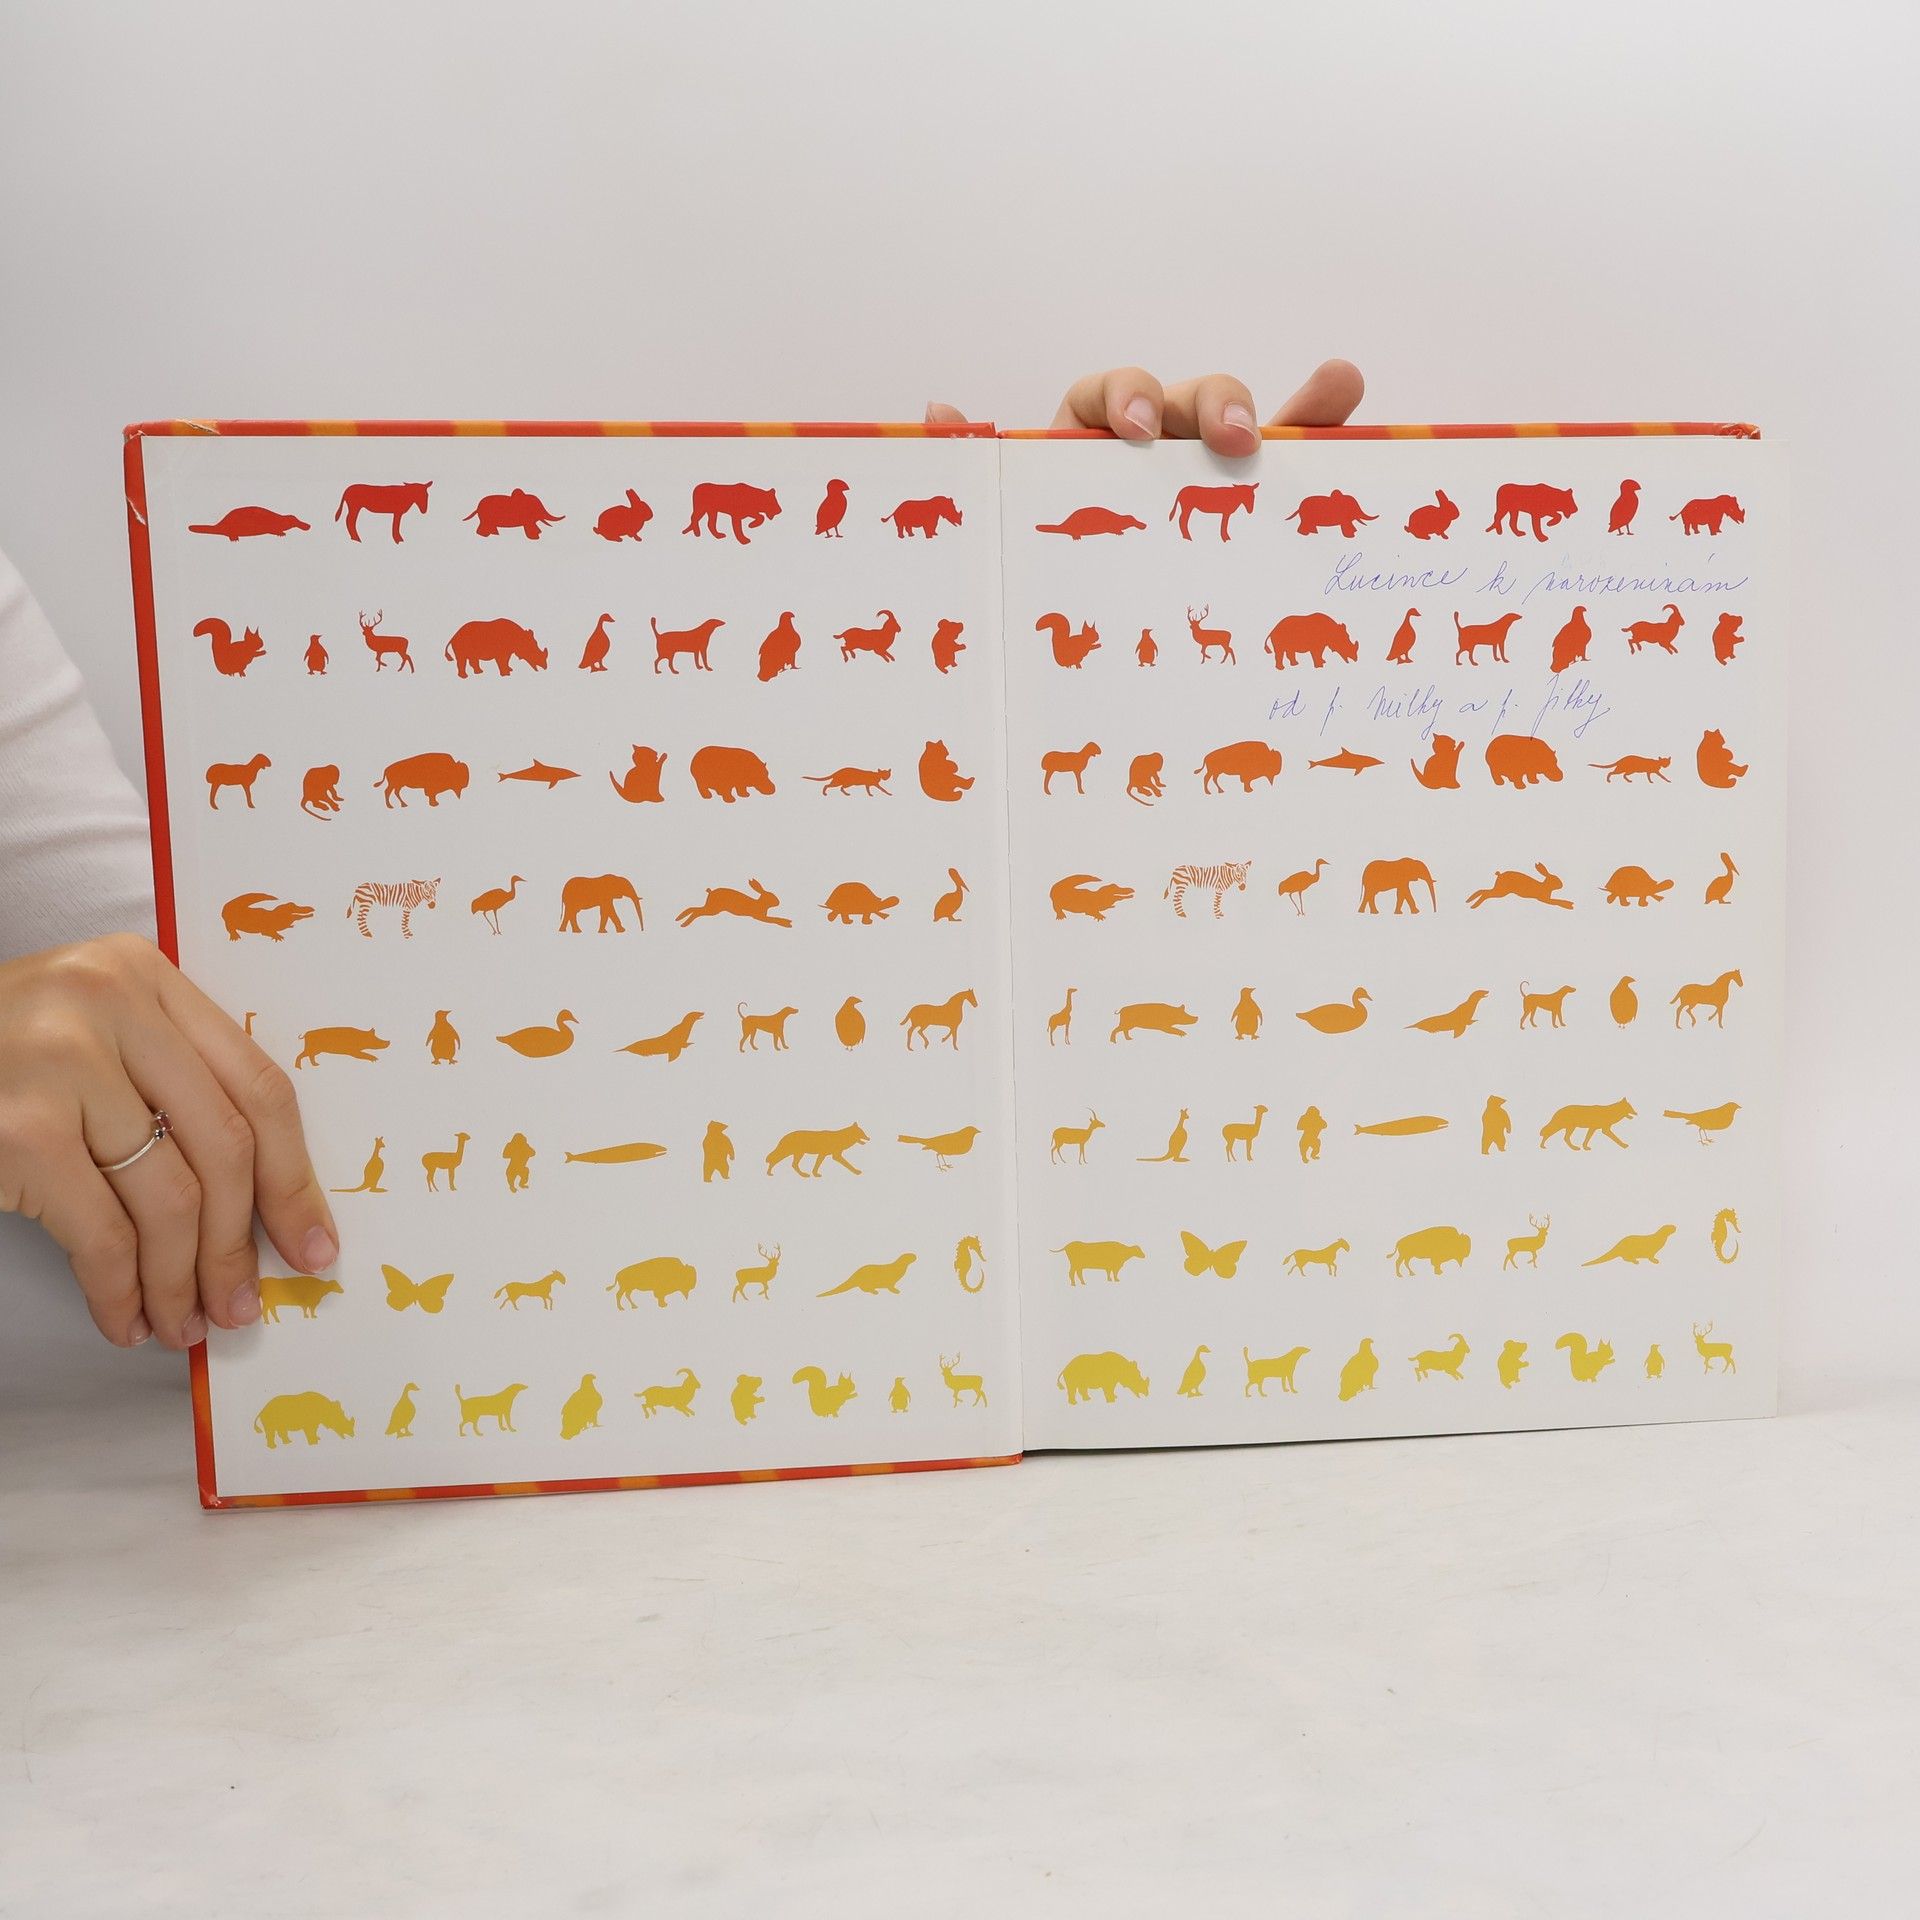 Lucince k narozeninám
od p. Milky a p. Jitky